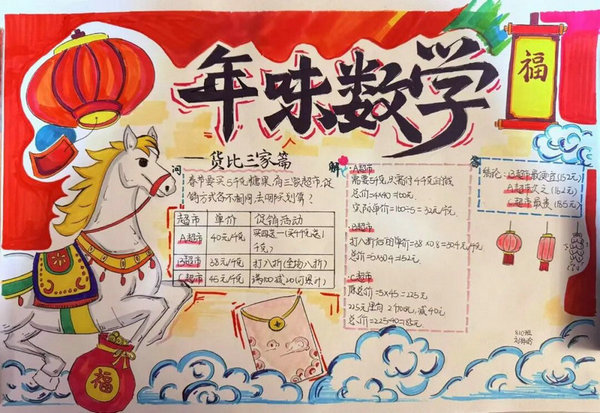 年味数学
福
货比三家篇
问
春节要买5千克糖果,有三家超市,促
销方式各不相同,去哪家划算?
超市 单价 促销活动
A超市 40元/千克 买四送一(买4千克送1
千克)
B超市 38元/千克 打八折(全场八折)
C超市 45元/千克
解
A超市
需要5千克,只需付4千克的钱
总价=4×40=160元
实际单价=160÷5=32元/千克.
B超市
打八折后的单价=38×0.8=30.4元/千克
总价=5×30.4=152元
C超市
原总价=5×45=225元
225元里有2个100元,减40元
总价=225-40=185元
答
结论:B超市最便宜(152元)
A超市次之(162元)
C超市最贵(185元)
福
810班